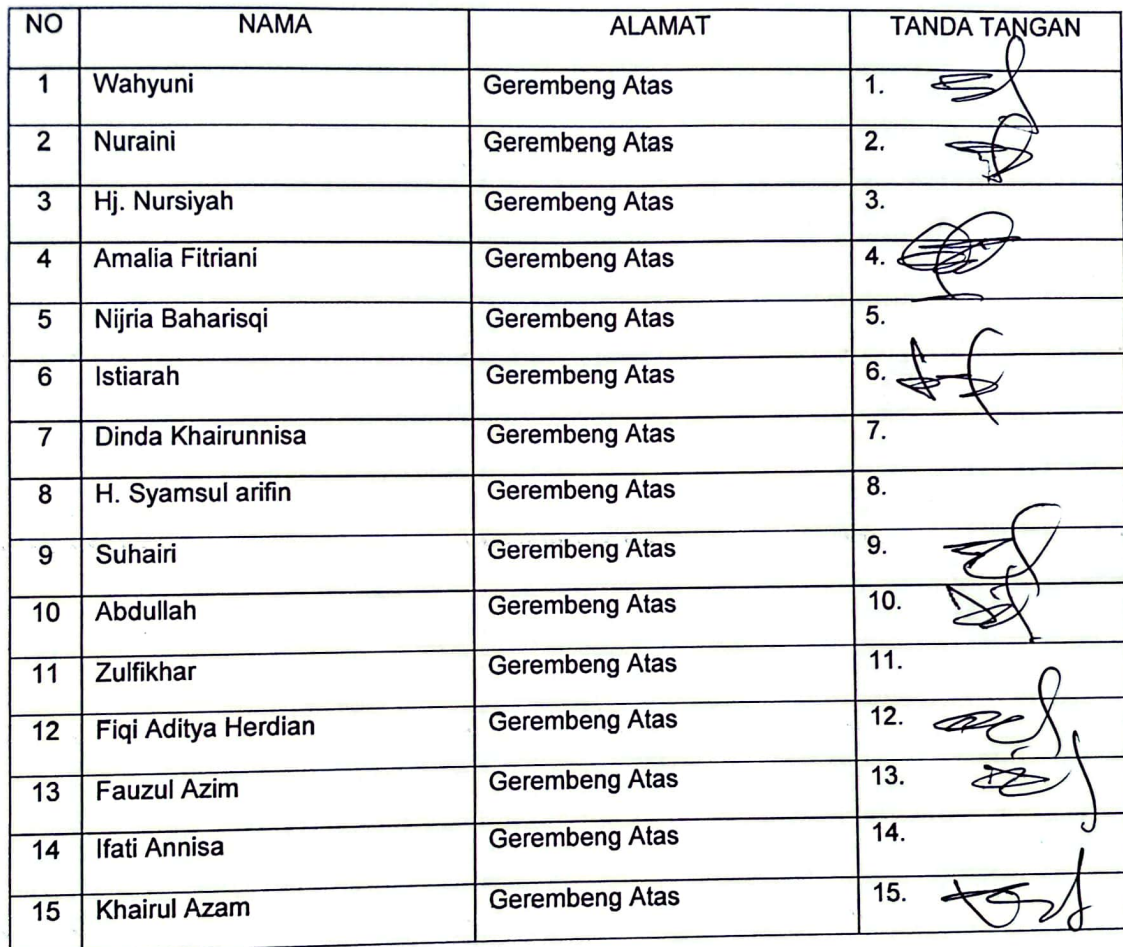 NO NAMA ALAMAT TANDA TANGAN
1 Wahyuni Gerembeng Atas 1.
2 Nuraini Gerembeng Atas 2.
3 Hj. Nursiyah Gerembeng Atas 3.
4 Amalia Fitriani Gerembeng Atas 4.
5 Nijria Baharisqi Gerembeng Atas 5.
6 Istiarah Gerembeng Atas 6.
7 Dinda Khairunnisa Gerembeng Atas 7.
8 H. Syamsul arifin Gerembeng Atas 8.
9 Suhairi Gerembeng Atas 9.
10 Abdullah Gerembeng Atas 10.
11 Zulfikhar Gerembeng Atas 11.
12 Fiqi Aditya Herdian Gerembeng Atas 12.
13 Fauzul Azim Gerembeng Atas 13.
14 Ifati Annisa Gerembeng Atas 14.
15 Khairul Azam Gerembeng Atas 15.